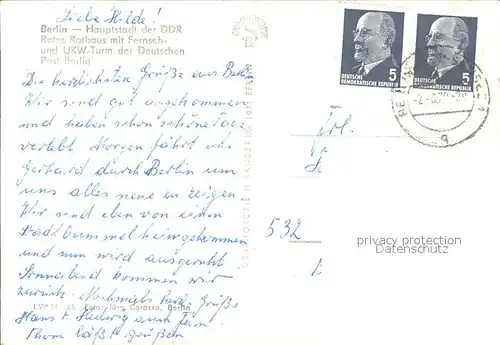 Liebe Hilde!
Berlin — Hauptstadt der DDR
Rotes Rathaus mit Fernseh-
und UKW-Turm der Deutschen
Post Berlin
Die herzlichsten Grüße aus Berlin
Wir sind gut angekommen
und haben schon schöne Tage
verlebt. Morgen fährt uns
Gerhard durch Berlin um
uns alles neue zu zeigen.
Wir sind eben von einen
Stadtbummel heimgekommen
und nun wird ausgeruht.
Sonnabend kommen wir
zurück. Nochmals herzl. Grüße
Berlin
Hans + Hedwig auch Fam.
Thom läßt grüßen
5
DEUTSCHE
DEMOKRATISCHE REPUBLIK
5
DEUTSCHE
DEMOKRATISCHE REPUBLIK
Frl.
532
privacy protection
www.oldthing.de